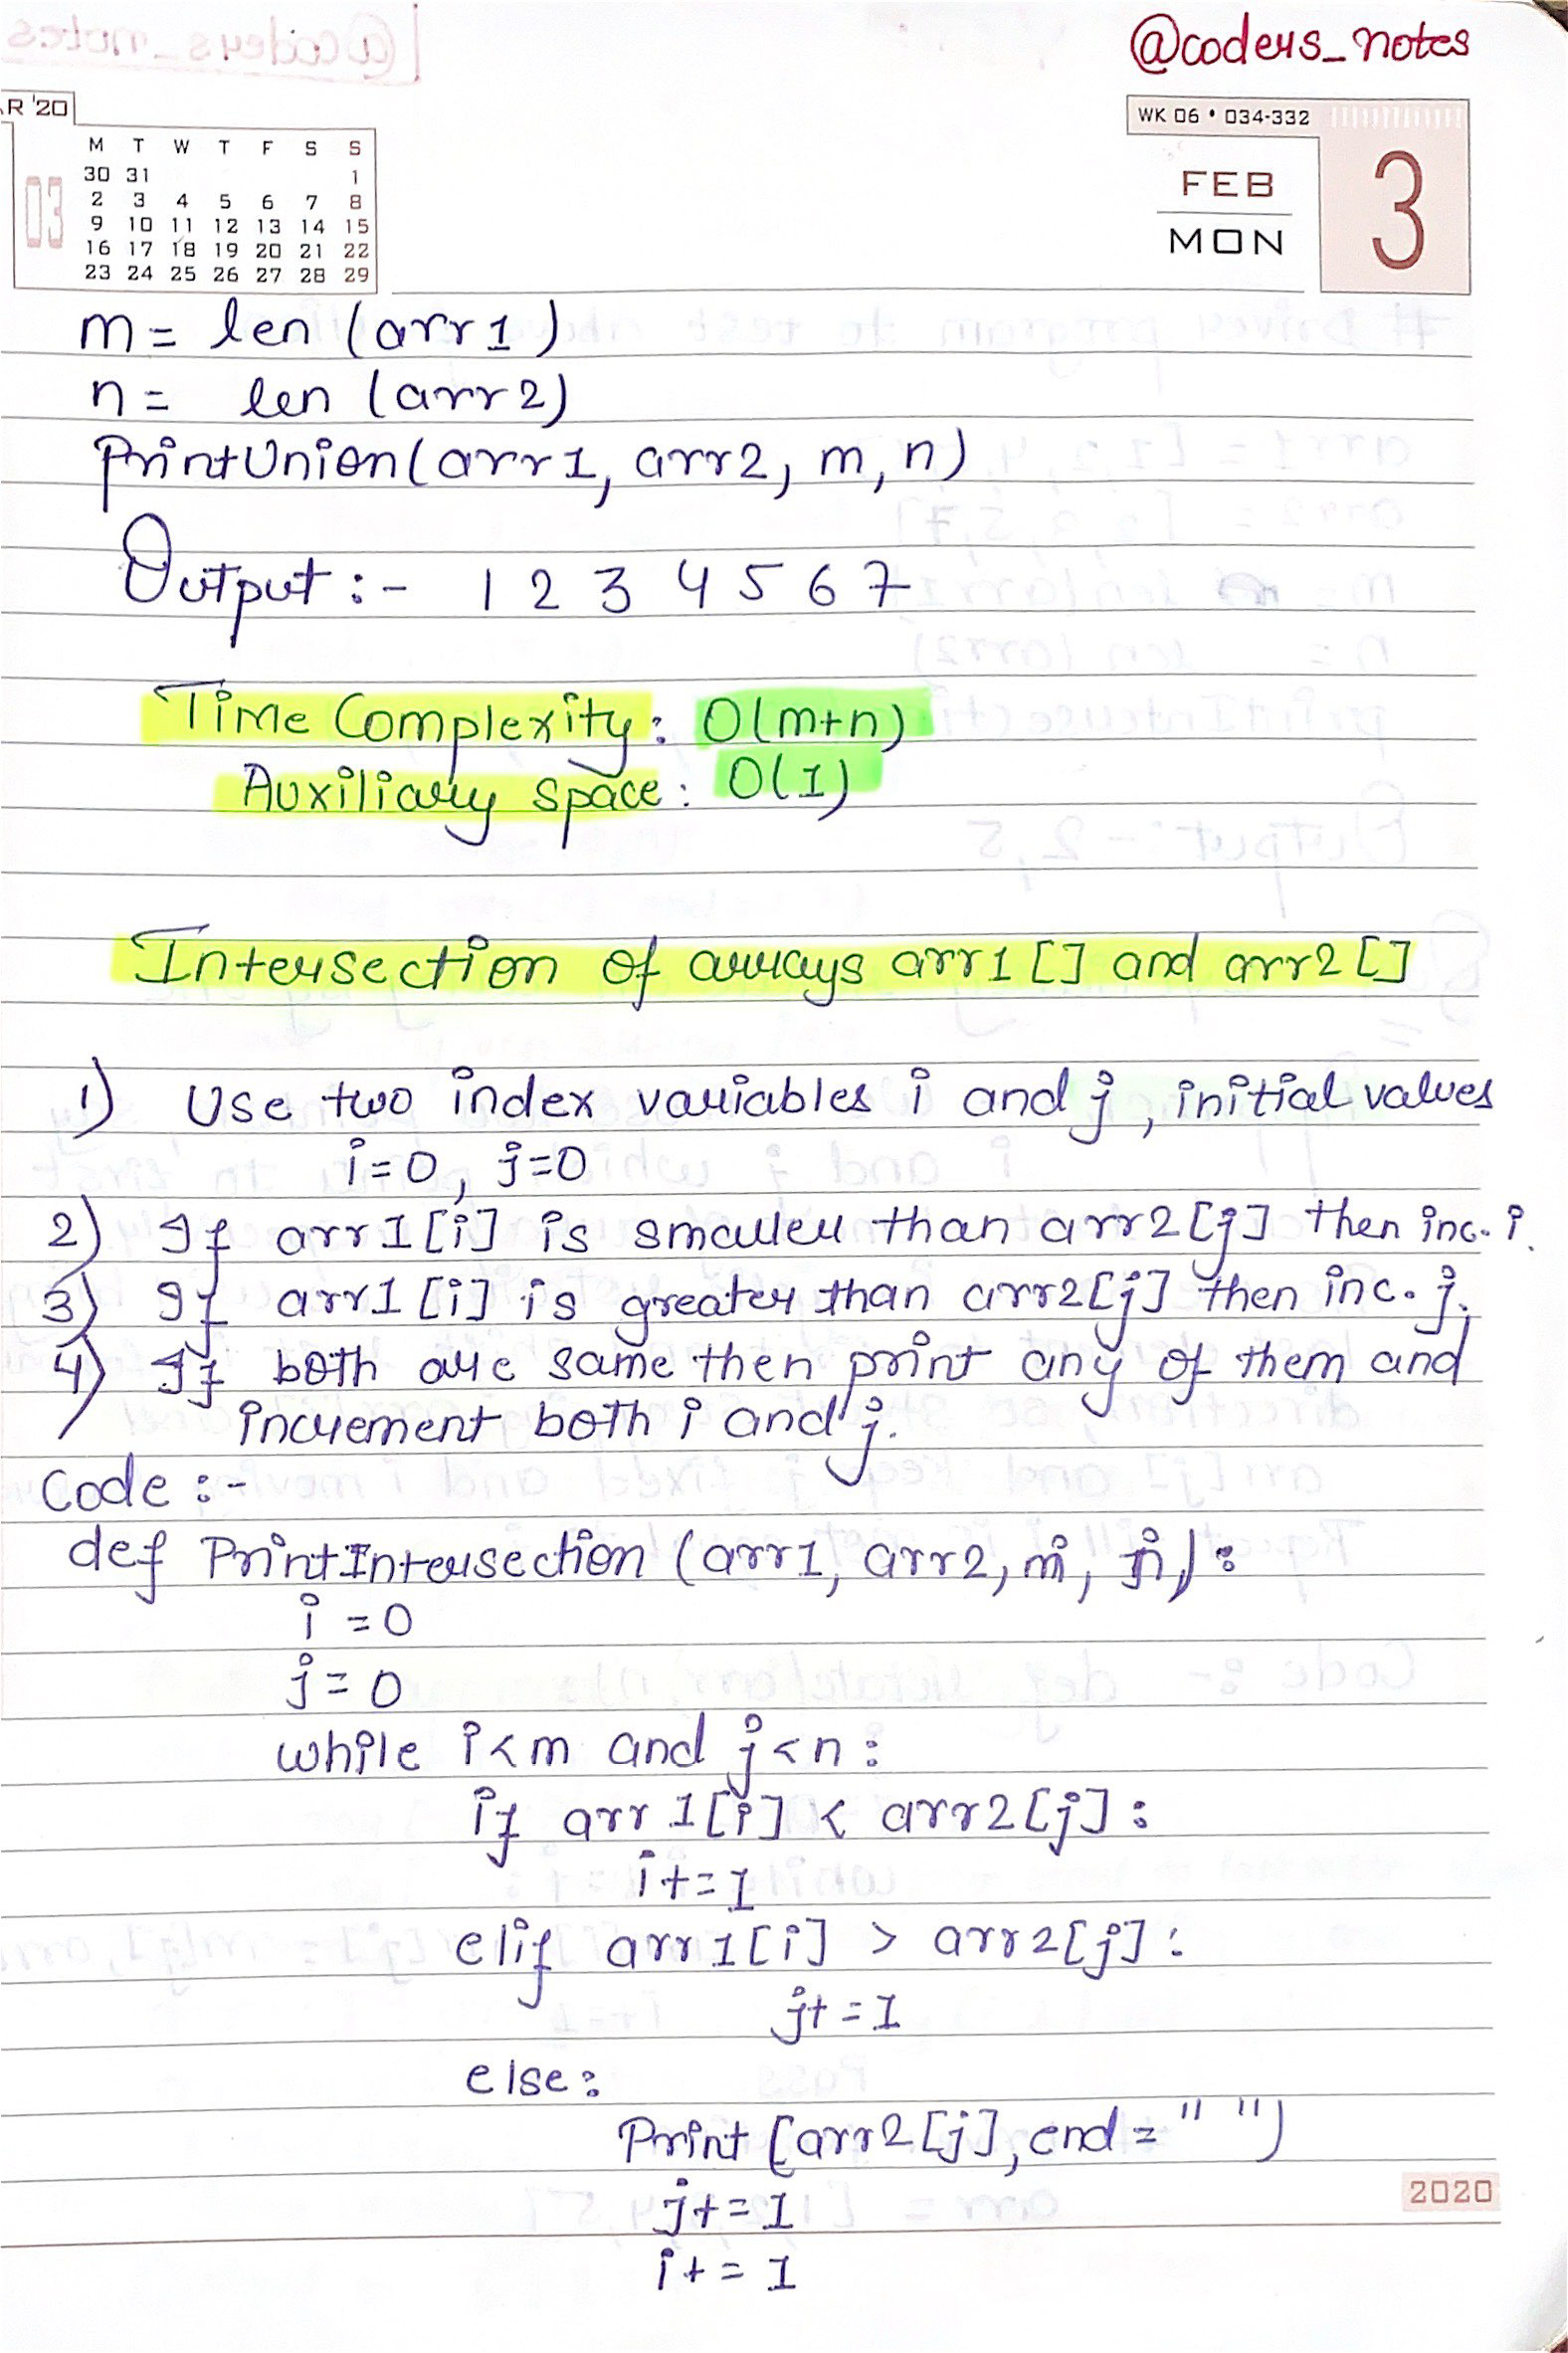 @coders_notes
R '20
WK 06 • 034-332
M T W T F S S
30 31 1
2 3 4 5 6 7 8
9 10 11 12 13 14 15
16 17 18 19 20 21 22
23 24 25 26 27 28 29
03
FEB
MON
3
m = len (arr1)
n = len (arr2)
PrintUnion(arr1, arr2, m, n)
Output :- 1 2 3 4 5 6 7
Time Complexity : O(m+n)
Auxiliary space : O(1)
Intersection of arrays arr1 [] and arr2 []
1) Use two index variables i and j, initial values
i=0, j=0
2) If arr1[i] is smaller than arr2[j] then inc. i.
3) If arr1[i] is greater than arr2[j] then inc. j.
4) If both are same then print any of them and
increment both i and j.
Code :-
def PrintIntersection (arr1, arr2, m, n) :
i = 0
j = 0
while i<m and j<n :
if arr1[i] < arr2[j] :
i+=1
elif arr1[i] > arr2[j] :
j+=1
else :
Print (arr2[j], end = " ")
j+=1
i+=1
2020